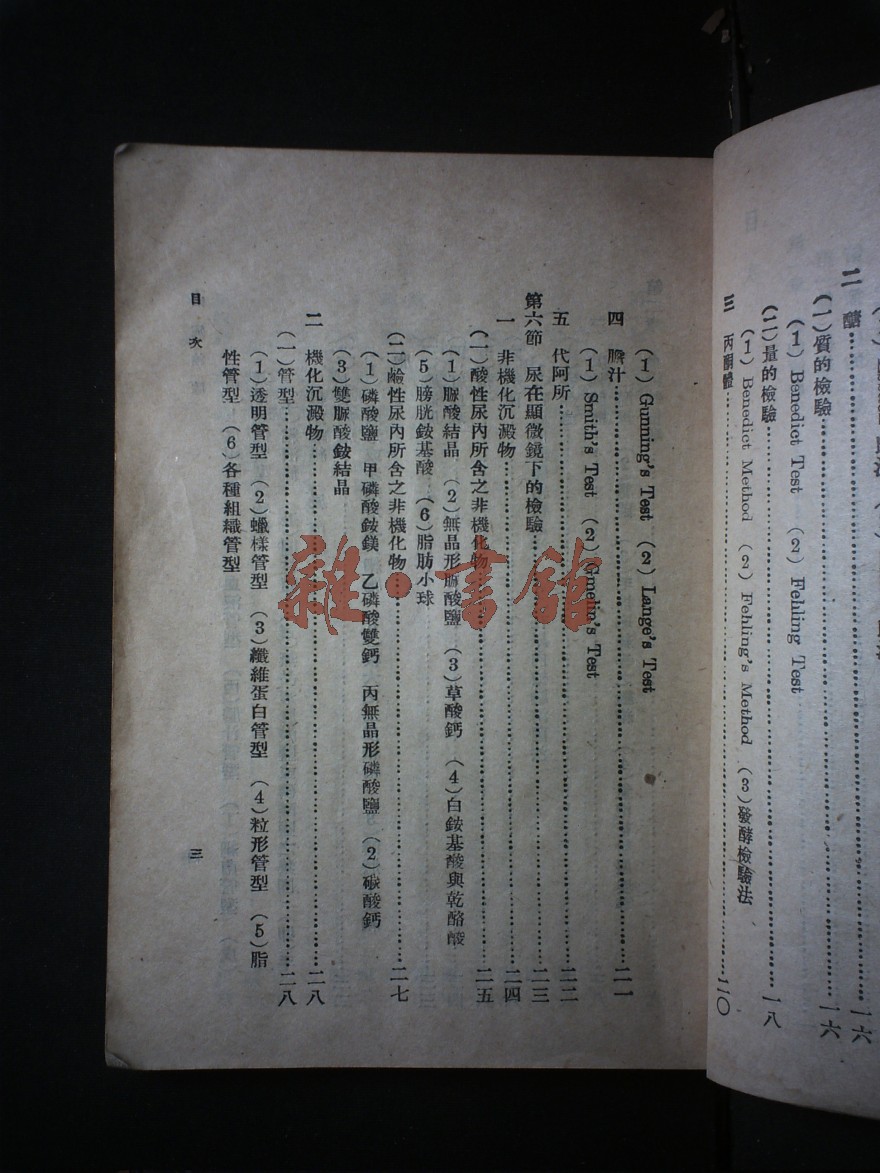 二 醣……一六
(一)質的檢驗……一六
(1) Benedict Test (2) Fehling Test
(二)量的檢驗……一八
(1) Benedict Method (2) Fehling's Method (3)發酵檢驗法
三 丙酮體……二〇
(1) Gunning's Test (2) Lange's Test
四 膽汁……二一
(1) Smith's Test (2) Gmelin's Test
五 代阿所……二二
第六節 尿在顯微鏡下的檢驗……二三
一 非機化沉澱物……二四
(一)酸性尿內所含之非機化物……二五
(1)脲酸結晶 (2)無晶形脲酸鹽 (3)草酸鈣 (4)白銨基酸與乾酪酸
(5)膀胱銨基酸 (6)脂肪小球
(二)鹼性尿內所含之非機化物……二七
(1)磷酸鹽 甲磷酸銨鎂 乙磷酸雙鈣 丙無晶形磷酸鹽 (2)碳酸鈣
(3)雙脲酸銨結晶
二 機化沉澱物……二八
(一)管型……二八
(1)透明管型 (2)蠟樣管型 (3)纖維蛋白管型 (4)粒形管型 (5)脂
性管型 (6)各種組織管型
目次 三
雜·書館